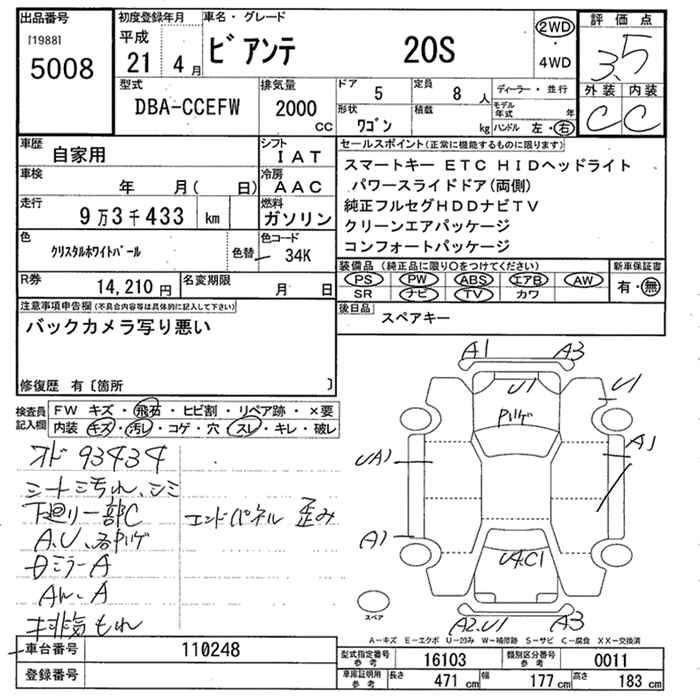 出品番号
[1988]
5008
初度登録年月
平成
21 4月
車名・グレード
ビアンテ 20S
2WD
・
4WD
評価点
3.5
外装 内装
C C
型式
DBA-CCEFW
排気量
2000 CC
ドア
5
定員
8 人
形状
ワゴン
積載
kg
ディーラー・並行
モデル年式 年
ハンドル 左・右
車歴
自家用
シフト
IAT
車検
年 月( 日)
冷房
AAC
走行
9万3千433 km
燃料
ガソリン
色
クリスタルホワイトパール
色替
色コード
34K
R券
14,210円
名変期限
月 日
セールスポイント(正常に機能するものに限ります)
スマートキー ETC HIDヘッドライト
パワースライドドア(両側)
純正フルセグHDDナビTV
クリーンエアパッケージ
コンフォートパッケージ
装備品(純正品に限り○をつけてください)
PS PW ABS エアB AW
SR ナビ TV カワ
新車保証書
有・無
後日品
スペアキー
注意事項申告欄(不具合内容等は具体的に記入して下さい)
バックカメラ写り悪い
修復歴 有〔箇所 〕
検査員記入欄
FW キズ・飛石・ヒビ割・リペア跡・×要
内装 キズ・汚レ・コゲ・穴・スレ・キレ・破レ
オド 93434
シート汚れ、シミ
下廻り一部C
エンドパネル 歪み
A、U、
ミラーA
A
排気もれ
A1 A3
U1
U1
A1
A1
A2.U1 A3
スペア
A-キズ E-エクボ U-凹み W-補修跡 S-サビ C-腐食 XX-交換済
車台番号
110248
登録番号
型式指定番号
参考
16103
類別区分番号
参考
0011
車庫証明用
参考
長さ 471 cm
幅 177 cm
高さ 183 cm